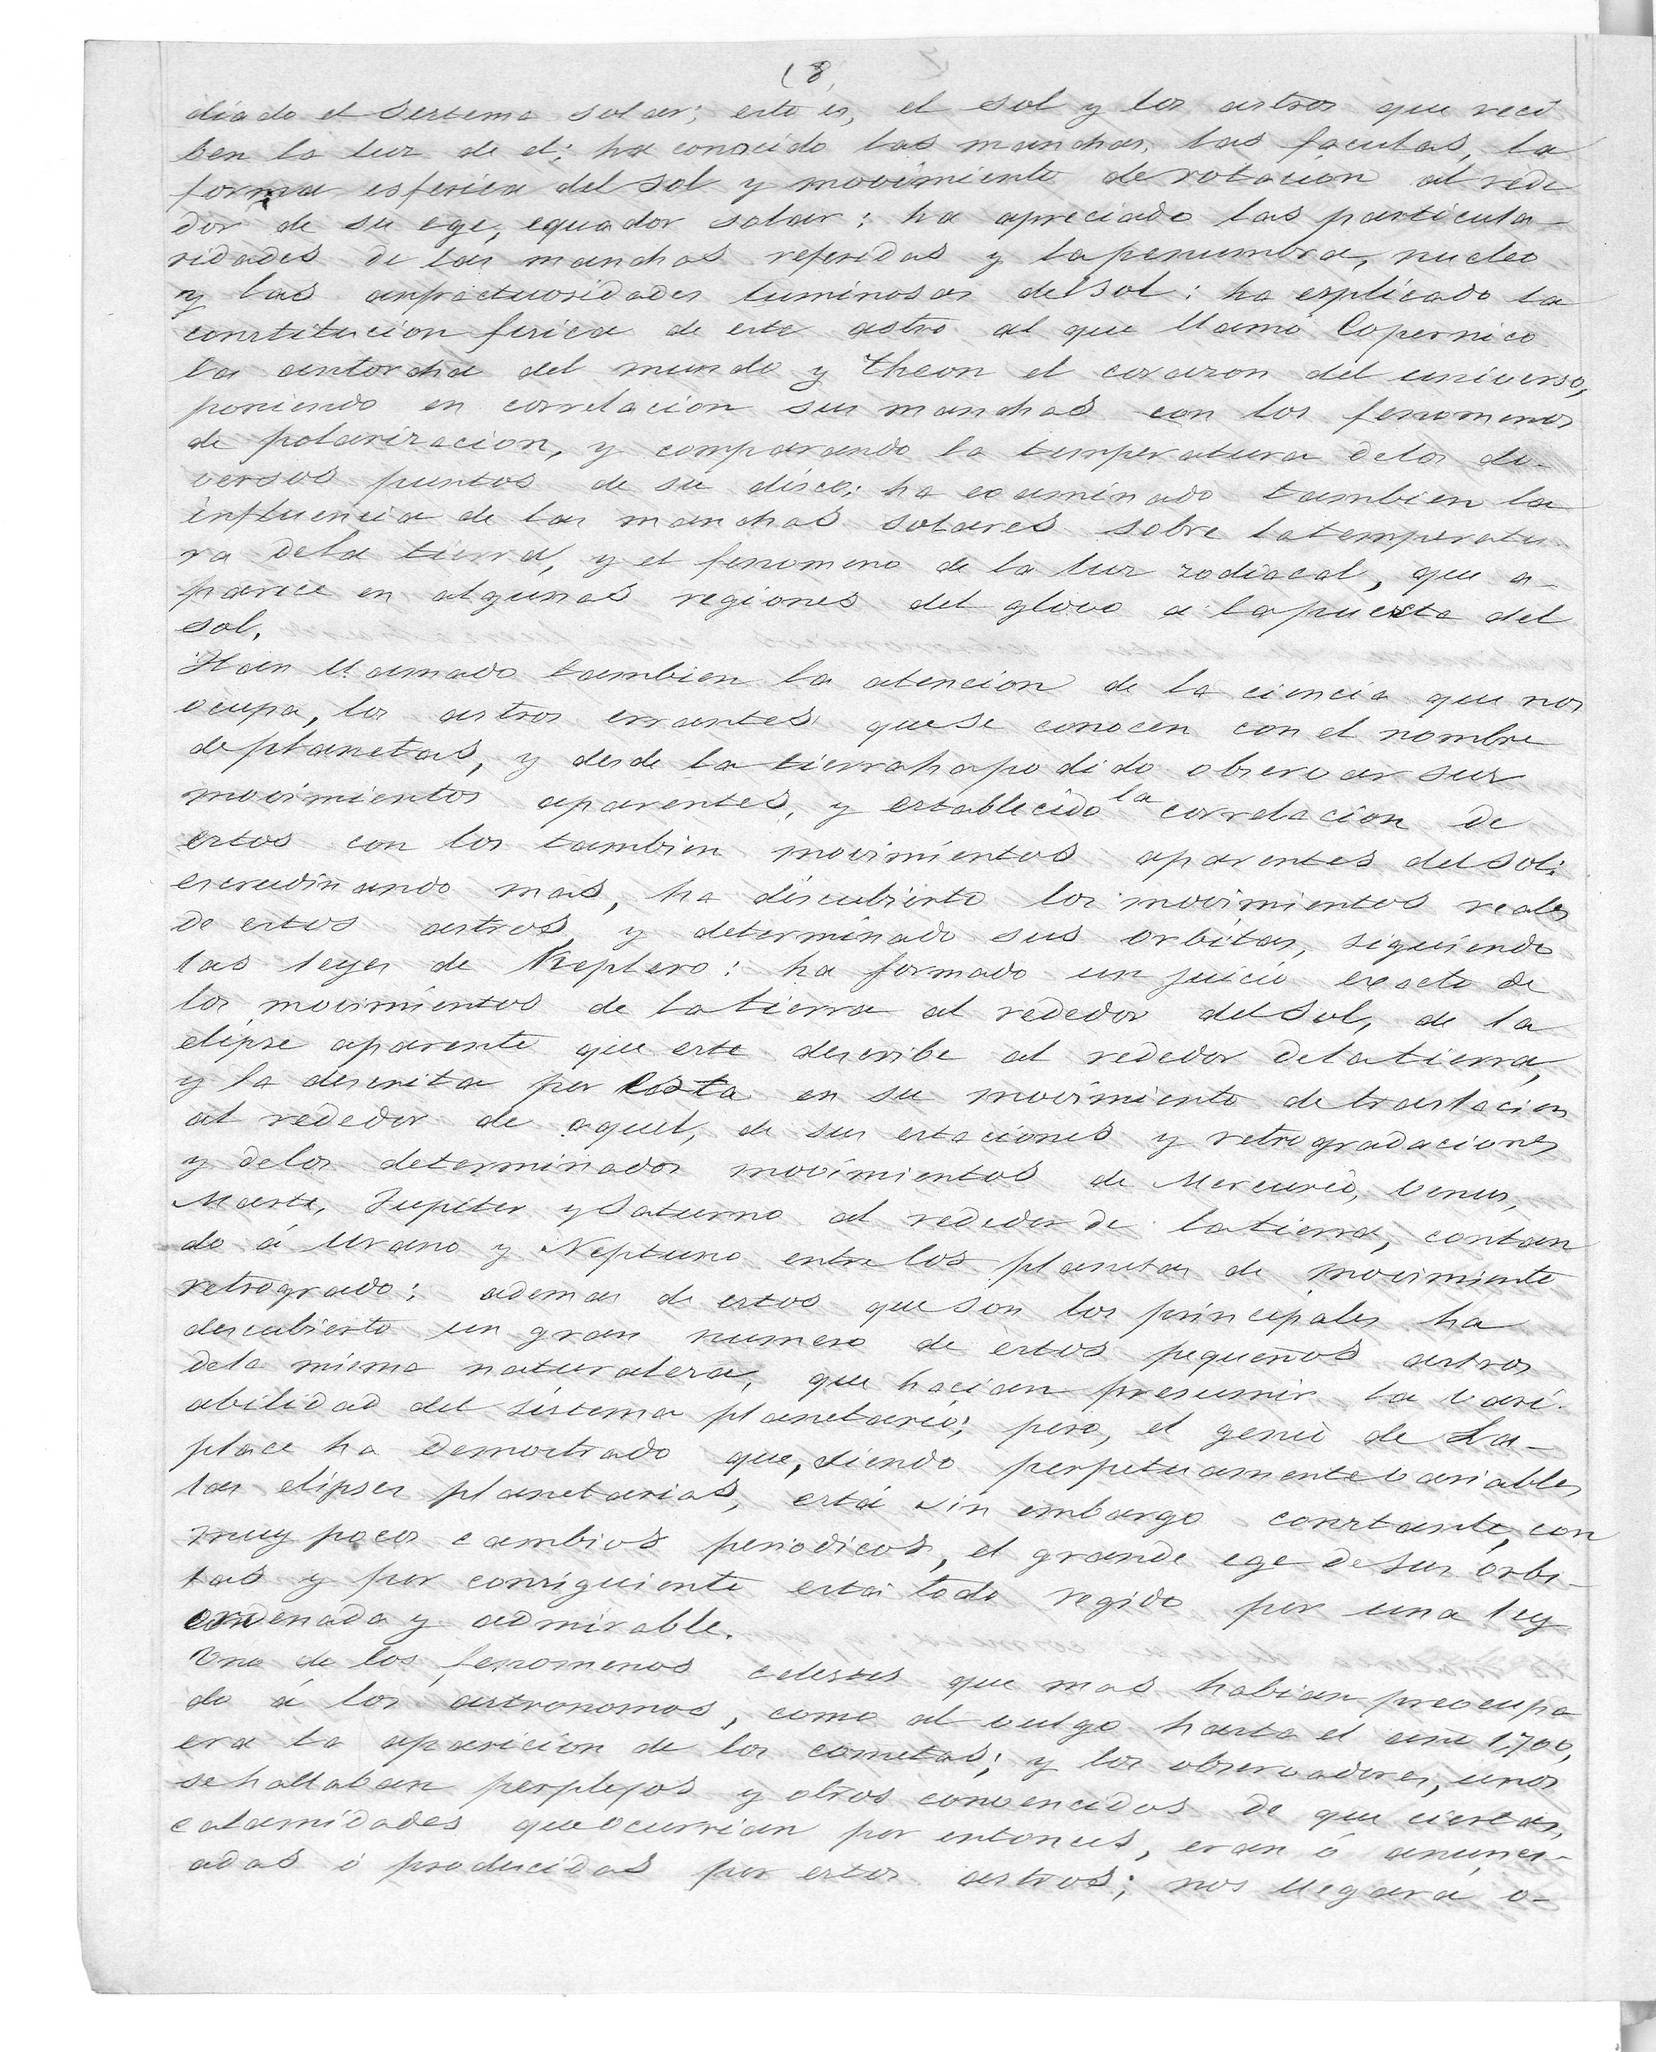 (8
diado el Sestema solar; esto es, el sol y los astros que reci
ben la luz de el; ha conocido las manchas, las faculas, la
forma esferica del sol y movimiento de rotacion al rede
dor de su ege, equador solar: ha apreciado las particula-
ridades de las manchas referidas y la penumbra, nucleo
y las anfractuosidades luminosas del sol: ha esplicado la
constitucion fisica de este astro al que llamó Copernico
la antorcha del mundo y Theon el corazon del universo,
poniendo en correlacion sus manchas con los fenomenos
de polarizacion, y comparando la temperatura de los di-
versos puntos de su disco: ha examinado tambien la
influencia de las manchas solares sobre la temperatu-
ra de la tierra, y el fenomeno de la luz zodiacal, que a-
parece en algunas regiones del glovo a la puesta del
sol.
Han llamado tambien la atencion de la ciencia que nos
ocupa, los astros errantes que se conocen con el nombre
de planetas, y desde la tierra ha podido observar sus
movimientos aparentes, y establecido la correlacion de
estos con los tambien movimientos aparentes del sol:
escrudiñando mas, ha discubierto los movimientos reales
de estos astros y determinado sus orbitas, siguiendo
las leyes de KepLero: ha formado un juicio exacto de
los movimientos de la tierra al rededor del sol, de la
elipse aparente que este describe al rededor de la tierra,
y la descrita por esta en su movimiento de traslacion
al rededor de aquel, de sus estaciones y retrogradaciones
y de los determinados movimientos de Mercurio, Venus,
Marte, Jupiter y Saturno al rededor de la tierra, contan
do á Urano y Neptuno entre los planetas de movimiento
retrogrado: ademas de estos que son los principales ha
descubierto un gran numero de estos pequeños astros
de la misma naturaleza, que hacian presumir la vari-
abilidad del sistema planetario; pero, el genio de La-
place ha demostrado que, siendo perpetuamente variables
las elipses planetarias, está sin embargo constante, con
muy pocos cambios periodicos, el grande ege de sus orbi-
tas y por consiguiente está todo regido por una ley
ordenada y admirable.
Uno de los fenomenos celestes que mas habian preocupa
do á los astronomos, como al vulgo hasta el año 1,700,
era la aparicion de los cometas; y los observadores, unos
se hallaban perplejos y otros convencidos de que ciertas,
calamidades que ocurrian por entonces, eran ó anunci-
adas ó producidas por estos astros; nos llegará o-